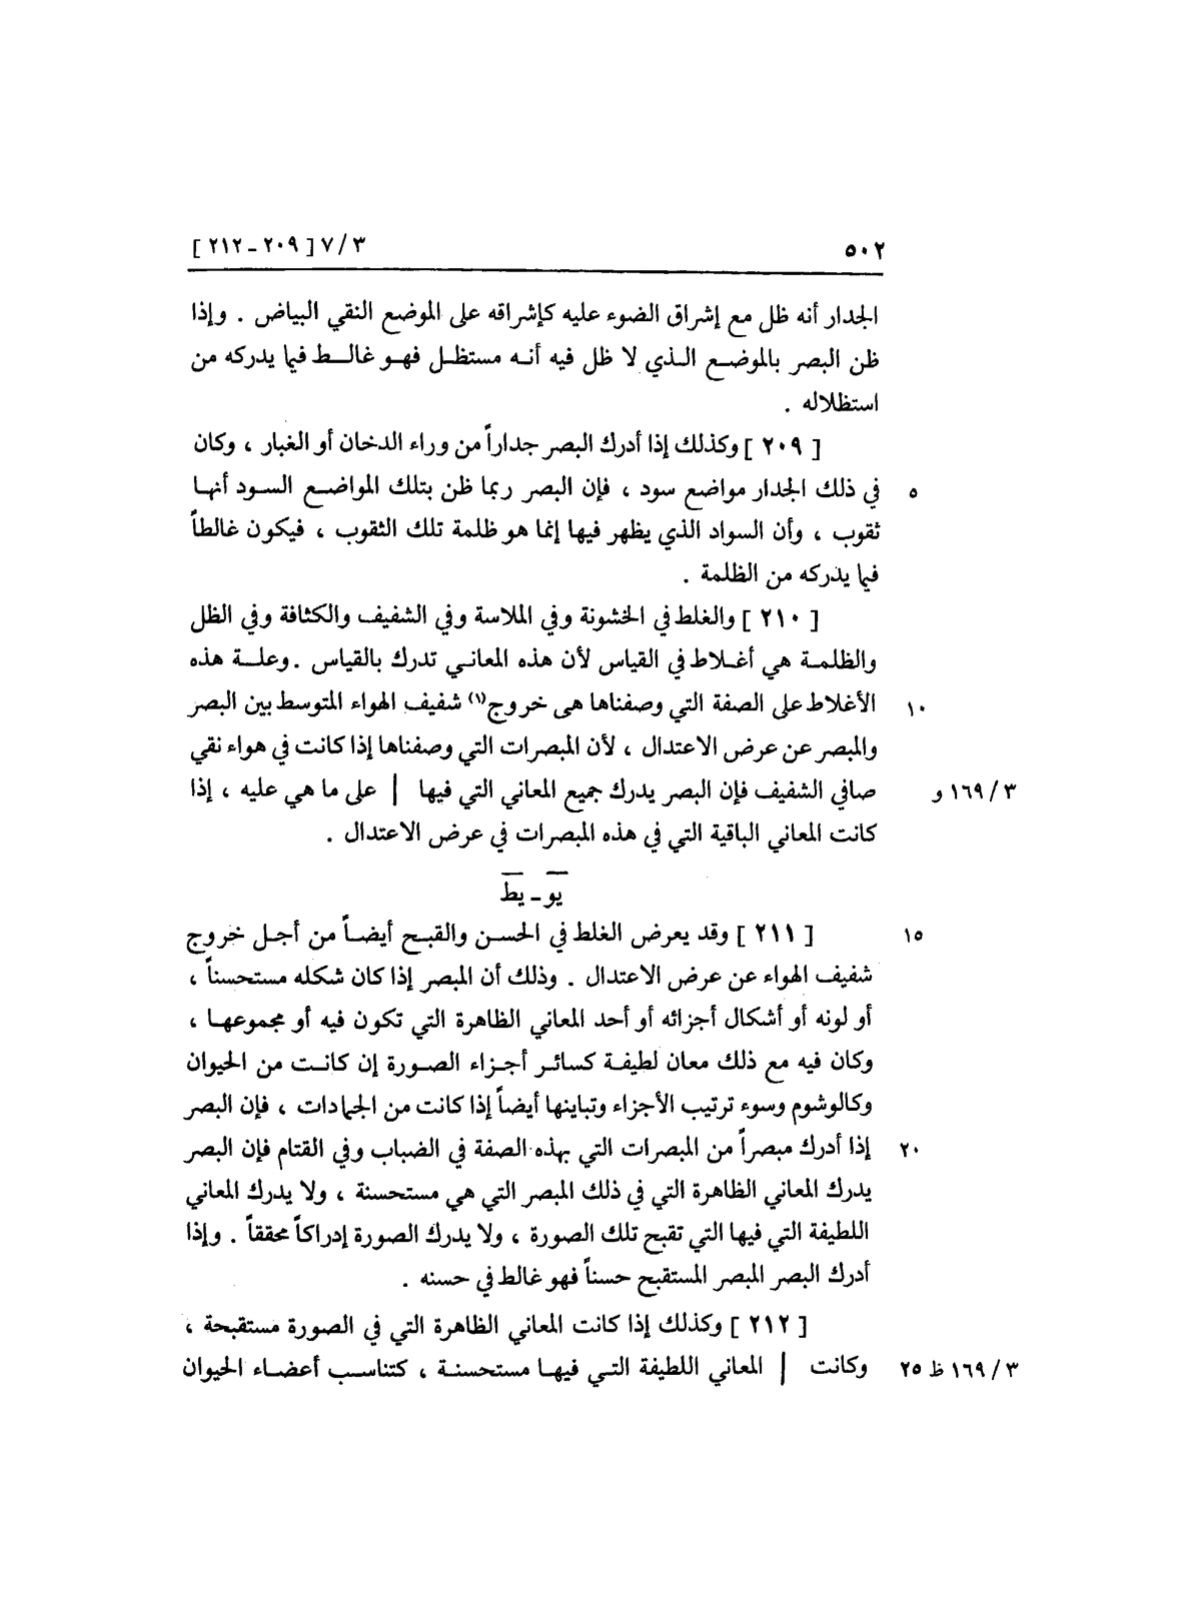 ٥٠٢ ٣ / ٧ [ ٢٠٩ – ٢١٢ ]
الجدار أنه ظل مع إشراق الضوء عليه كإشراقه على الموضع النقي البياض . وإذا
ظن البصر بالموضع الذي لا ظل فيه أنه مستظل فهو غالط فيما يدركه من
استظلاله .
[ ٢٠٩ ] وكذلك إذا أدرك البصر جداراً من وراء الدخان أو الغبار ، وكان
٥ في ذلك الجدار مواضع سود ، فإن البصر ربما ظن بتلك المواضع السود أنها
ثقوب ، وأن السواد الذي يظهر فيها إنما هو ظلمة تلك الثقوب ، فيكون غالطاً
فيما يدركه من الظلمة .
[ ٢١٠ ] والغلط في الخشونة وفي الملاسة وفي الشفيف والكثافة وفي الظل
والظلمة هي أغلاط في القياس لأن هذه المعاني تدرك بالقياس . وعلة هذه
١٠ الأغلاط على الصفة التي وصفناها هى خروج(١) شفيف الهواء المتوسط بين البصر
والمبصر عن عرض الاعتدال ، لأن المبصرات التي وصفناها إذا كانت في هواء نقي
٣ / ١٦٩ و صافي الشفيف فإن البصر يدرك جميع المعاني التي فيها | على ما هي عليه ، إذا
كانت المعاني الباقية التي في هذه المبصرات في عرض الاعتدال .
يو – يط
١٥ [ ٢١١ ] وقد يعرض الغلط في الحسن والقبح أيضاً من أجل خروج
شفيف الهواء عن عرض الاعتدال . وذلك أن المبصر إذا كان شكله مستحسناً ،
أو لونه أو أشكال أجزائه أو أحد المعاني الظاهرة التي تكون فيه أو مجموعها ،
وكان فيه مع ذلك معان لطيفة كسائر أجزاء الصورة إن كانت من الحيوان
وكالوشوم وسوء ترتيب الأجزاء وتباينها أيضاً إذا كانت من الجمادات ، فإن البصر
٢٠ إذا أدرك مبصراً من المبصرات التي بهذه الصفة في الضباب وفي القتام فإن البصر
يدرك المعاني الظاهرة التي في ذلك المبصر التي هي مستحسنة ، ولا يدرك المعاني
اللطيفة التي فيها التي تقبح تلك الصورة ، ولا يدرك الصورة إدراكاً محققاً . وإذا
أدرك البصر المبصر المستقبح حسناً فهو غالط في حسنه .
[ ٢١٢ ] وكذلك إذا كانت المعاني الظاهرة التي في الصورة مستقبحة ،
٣ / ١٦٩ ظ ٢٥ وكانت | المعاني اللطيفة التي فيها مستحسنة ، كتناسب أعضاء الحيوان